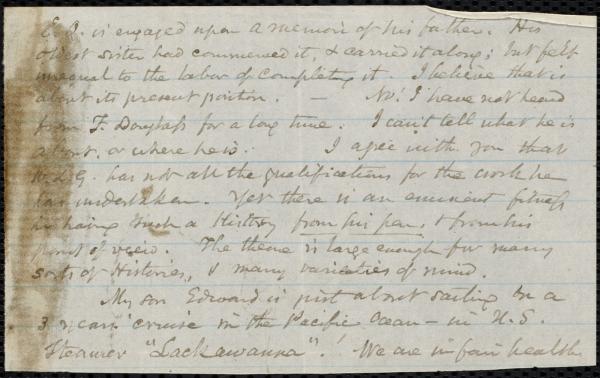 E. Q. is engaged upon a memoir of his father. His
oldest sister had commenced it, & carried it along; but felt
unequal to the labor of completing it. I believe that is
about its present position. — No! I have not heard
from F. Douglass for a long time. I can't tell what he is
about, or where he is. I agree with you that
W. L. G. has not all the qualifications for the work he
has undertaken. Yet there is an eminent fitness
in having such a History from his pen, & from his
point of view. The theme is large enough for many
sorts of Histories, & many varieties of mind.
My son Edward is just about sailing on a
3 years' cruise in the Pacific Ocean — in U.S.
Steamer "Lackawanna".! We are in fair health